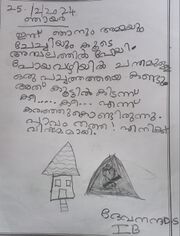 25/2/2024
ഞായർ
ഇന്ന് ഞാനും അമ്മയും
ചേച്ചിയും കൂടെ
അമ്പലത്തിൽ പോയി.
പോയവഴിയിൽ ചന്തമുള്ള
ഒരു പൂച്ചത്തയെ കണ്ടു
അത് കൂട്ടിൽ കിടന്ന്
കീ..... കീ... എന്ന്
കരഞ്ഞുകൊണ്ടിരുന്നു.
പാവം തത്ത! എനിക്ക്
വിഷമമായി.
ദേവനന്ദ S
I B